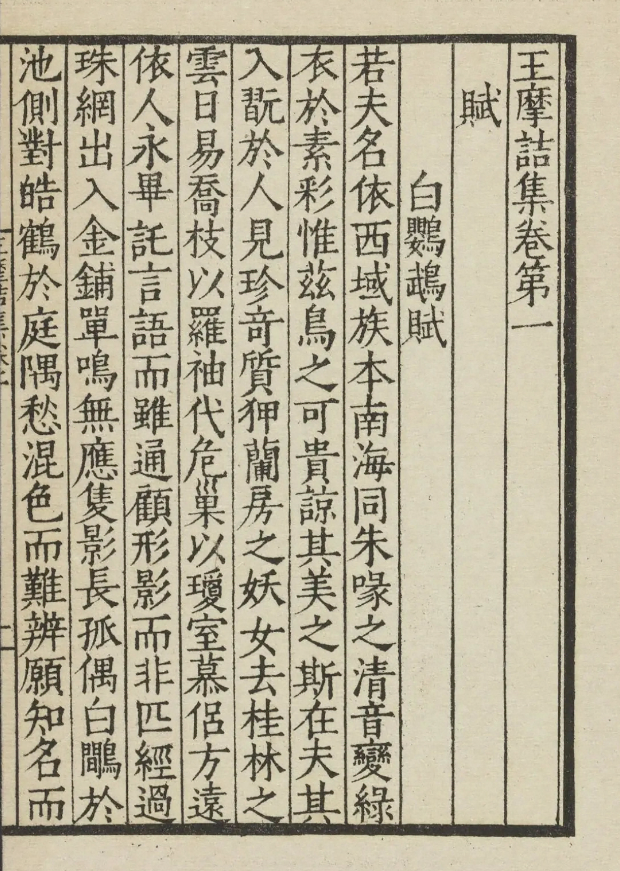 王摩詰集卷第一
賦
白鸚鵡賦
若夫名依西域族本南海同朱喙之清音變綠
衣於素彩惟茲鳥之可貴諒其美之斯在夫其
入翫於人見珍奇質狎蘭房之妖女去桂林之
雲日易喬枝以羅袖代危巢以瓊室慕侶方遠
依人永畢託言語而雖通顧形影而非匹經過
珠網出入金鋪單鳴無應隻影長孤偶白鷴於
池側對皓鶴於庭隅愁混色而難辨願知名而